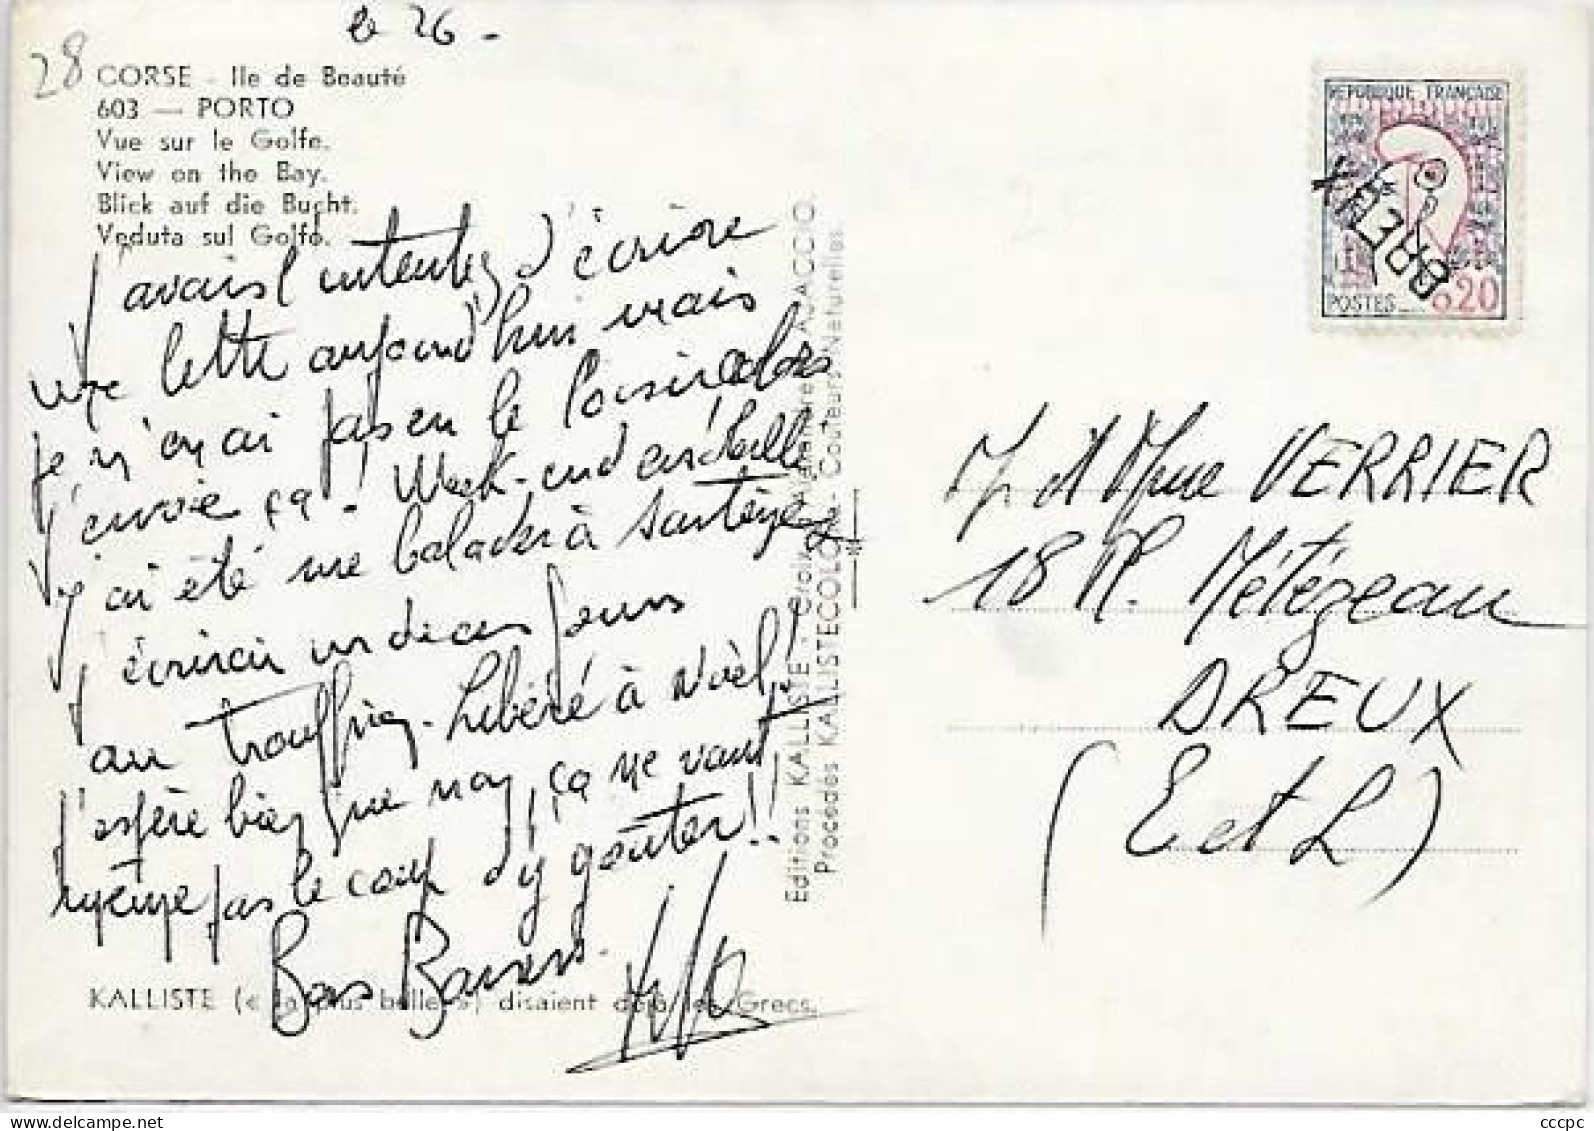 le 26 -
28
CORSE - Ile de Beauté
603 — PORTO
Vue sur le Golfe.
View on the Bay.
Blick auf die Bucht.
Veduta sul Golfo.
J'avais l'intention d'écrire
une lettre aujourd'hui mais
je n'en ai pas eu le loisir alors
j'envoie ça. Week-end ensoleillé
j'ai été me balader à Sartène
J'écrirai un de ces jours
au trouffion. Libéré à Noël!
J'espère bien que non, ça ne vaut
même pas le coup d'y goûter!!
Bons Baisers.
KALLISTE (« la plus belle ») disaient déjà les Grecs.
Editions KALLISTE - AJACCIO.
Procédés KALLISTECOLOR - Couleurs Naturelles.
REPUBLIQUE FRANÇAISE
POSTES
0,20
DREUX
M. et Mme VERRIER
18 R. Métézeau
DREUX
(E et L)
cccpc